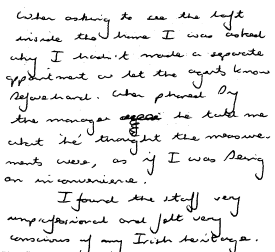 When asking to see the loft
inside the home I was asked
why I hadn't made a separate
appointment or let the agents know
beforehand. When phoned by
the manager he told me
what he thought the measure-
ments were, as if I was being
an inconvenience.
I found the staff very
unprofessional and felt very
conscious of my Irish heritage.